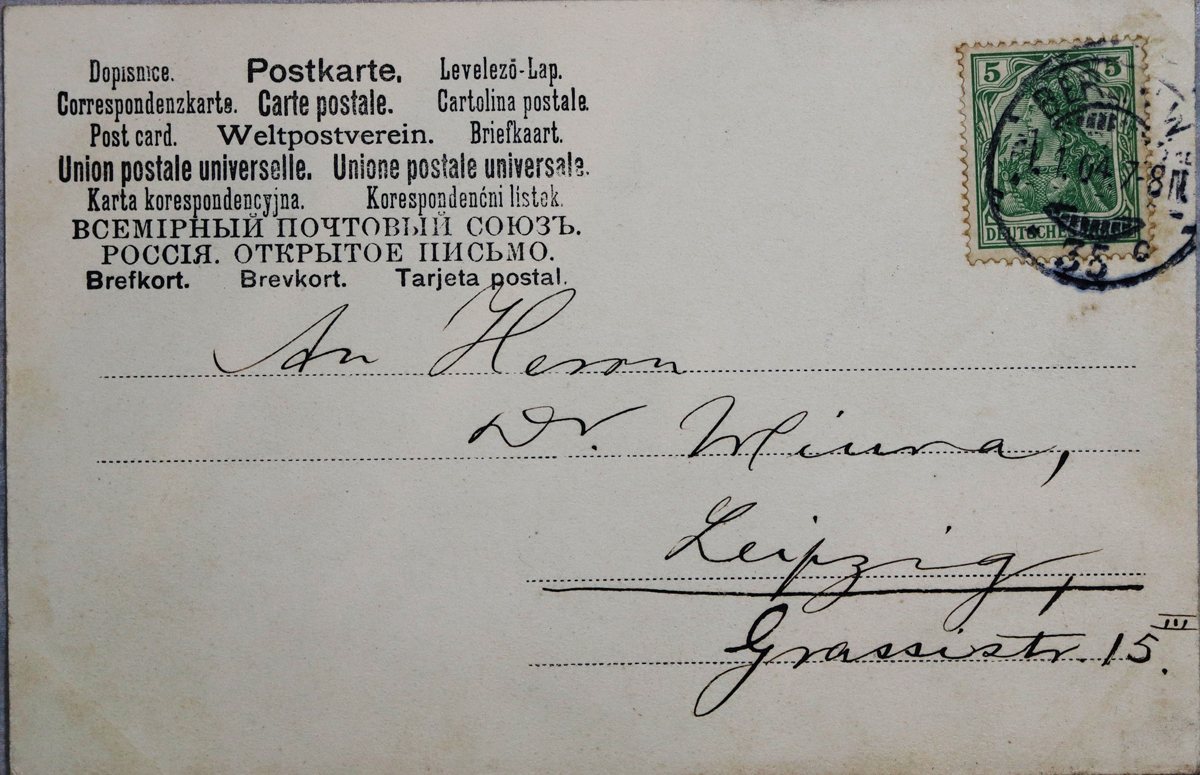 Dopisnice. Postkarte. Levelező-Lap.
Correspondenzkarte. Carte postale. Cartolina postale.
Post card. Weltpostverein. Briefkaart.
Union postale universelle. Unione postale universale.
Karta korespondencyjna. Korespondenćni listek.
ВСЕМІРНЫЙ ПОЧТОВЫЙ СОЮЗЪ.
РОССІЯ. ОТКРЫТОЕ ПИСЬМО.
Brefkort. Brevkort. Tarjeta postal.
5 5
DEUTSCHES
W
1.1.04.7-8N.
35 c
An Herrn
Dr. Miura,
Leipzig,
Grassistr. 15 III.